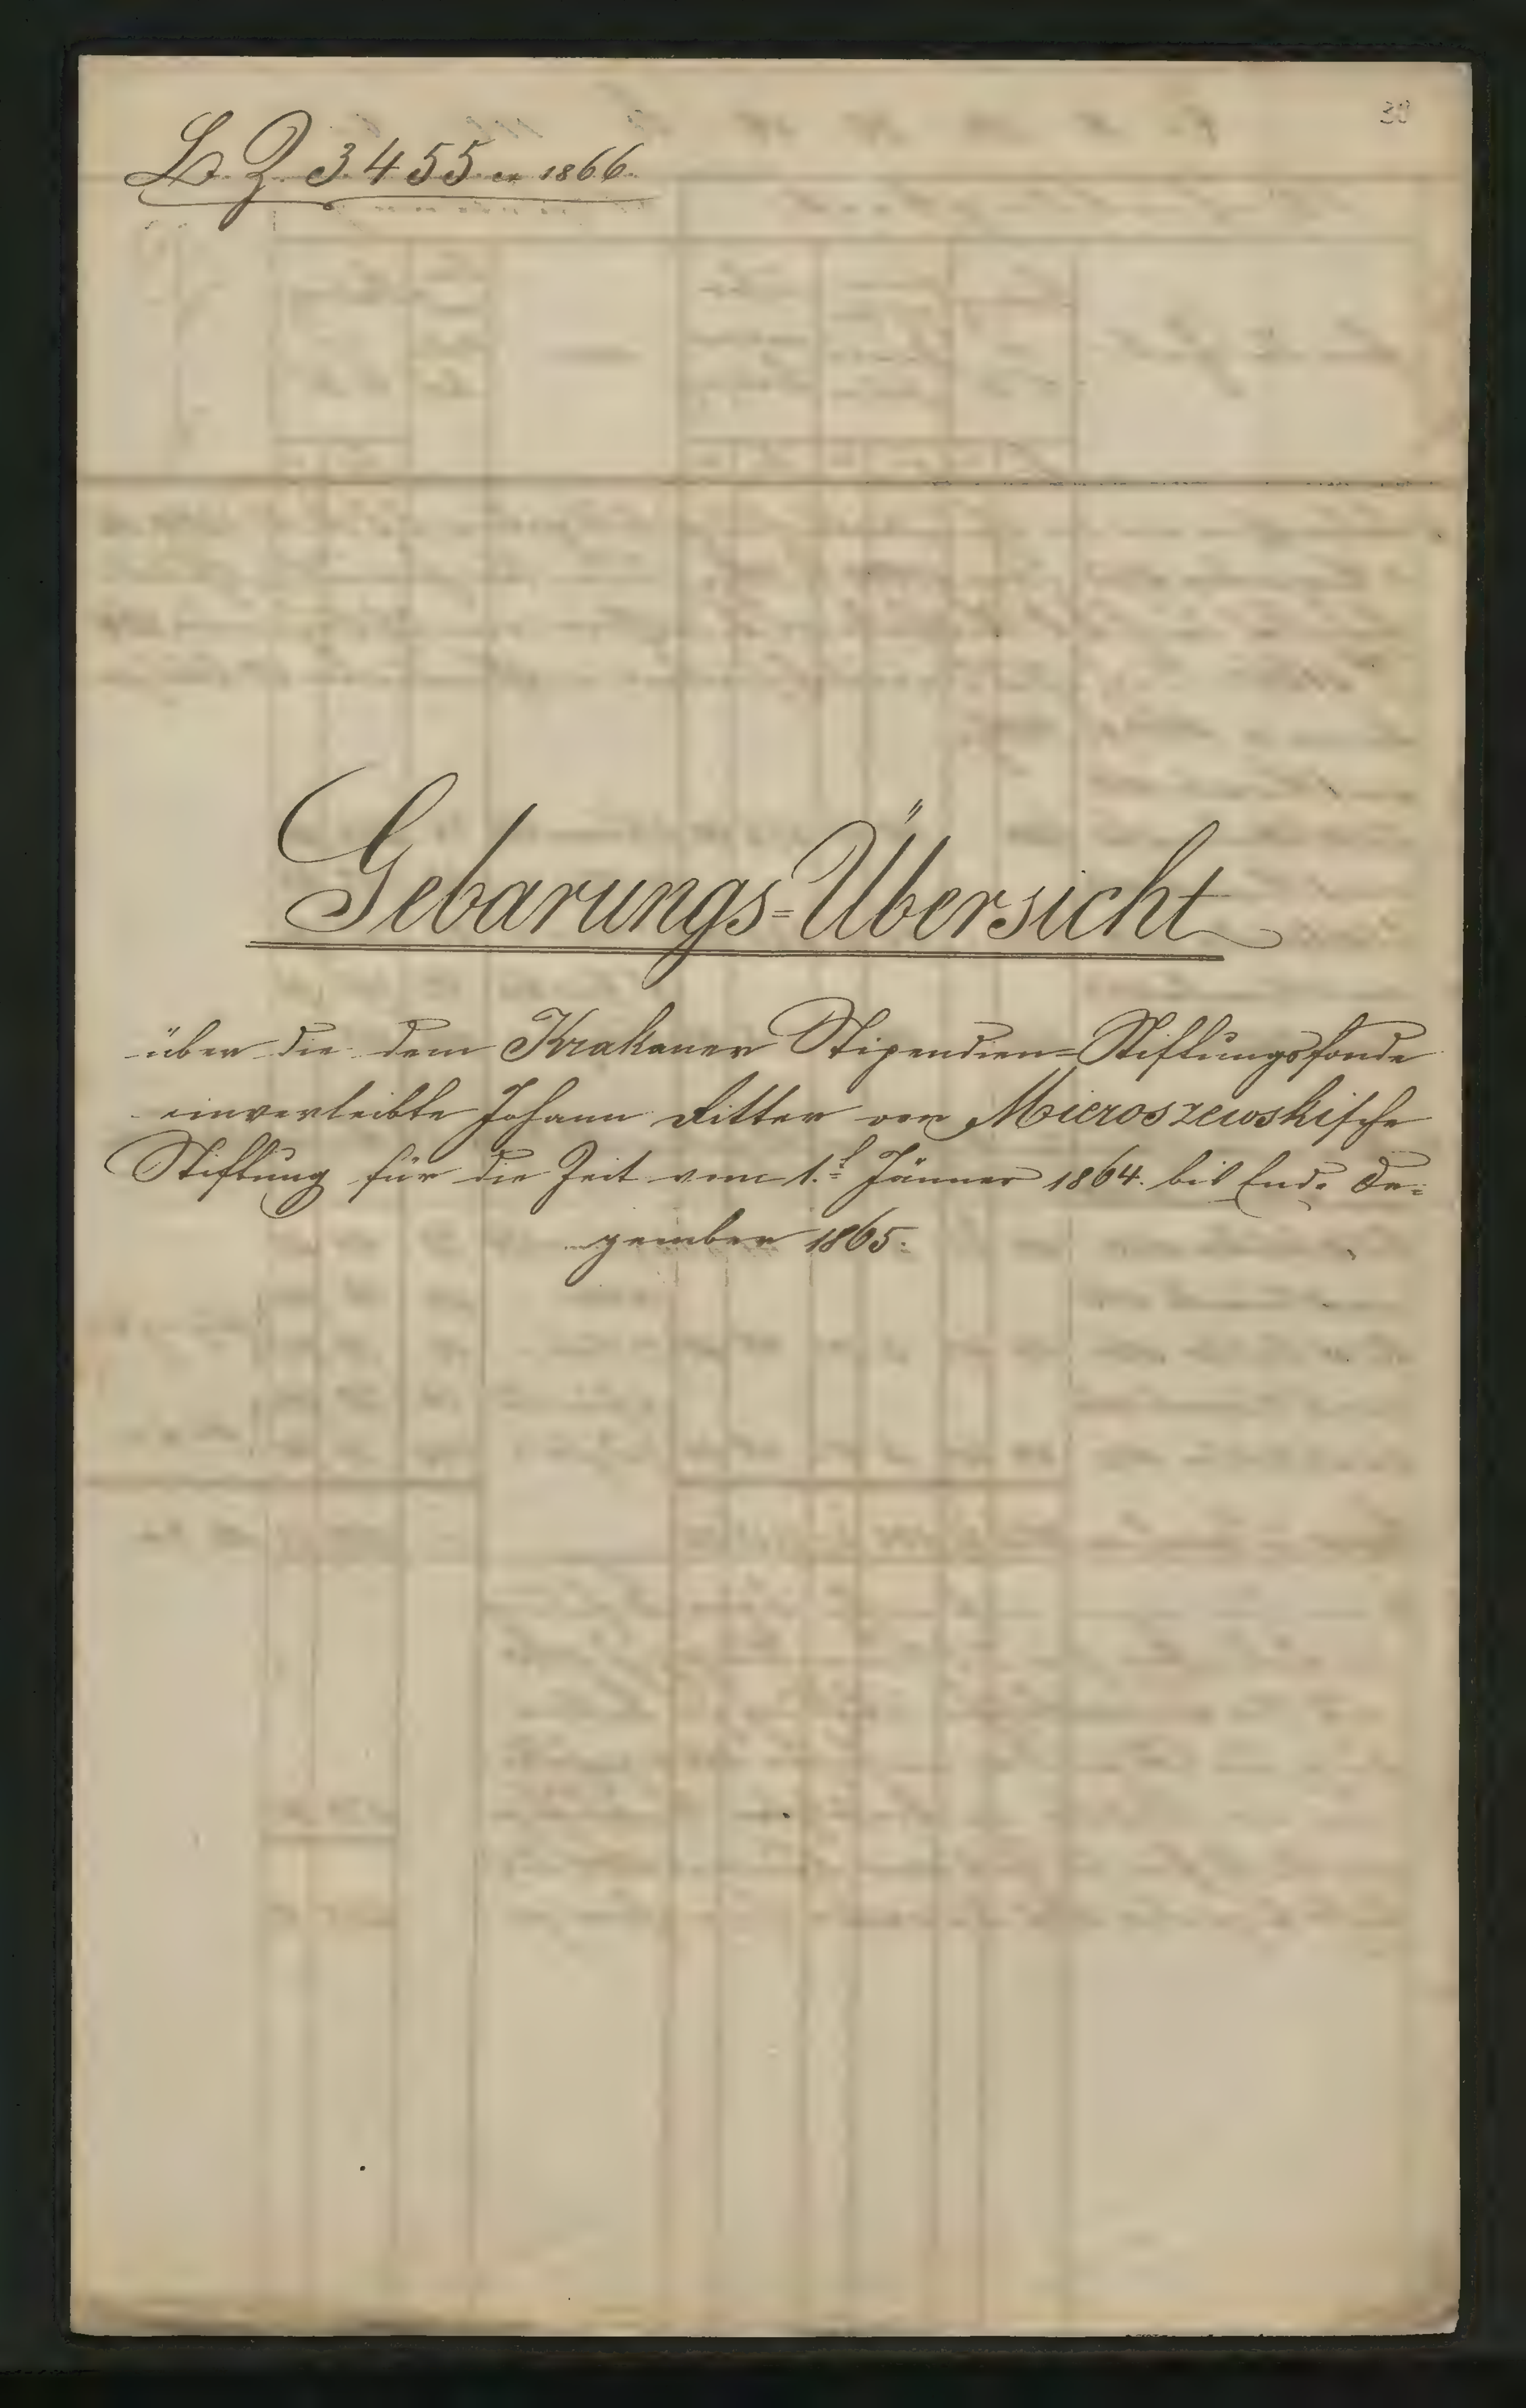 30
L. Z. 3455 ex 1866.
Gebarungs=Übersicht
über die dem Krakauer Stipendien=Stiftungsfonde
einverleibte Johann Ritter von Mieroszewskische
Stiftung für die Zeit vom 1.t Jänner 1864. bis Ende De=
zember 1865.